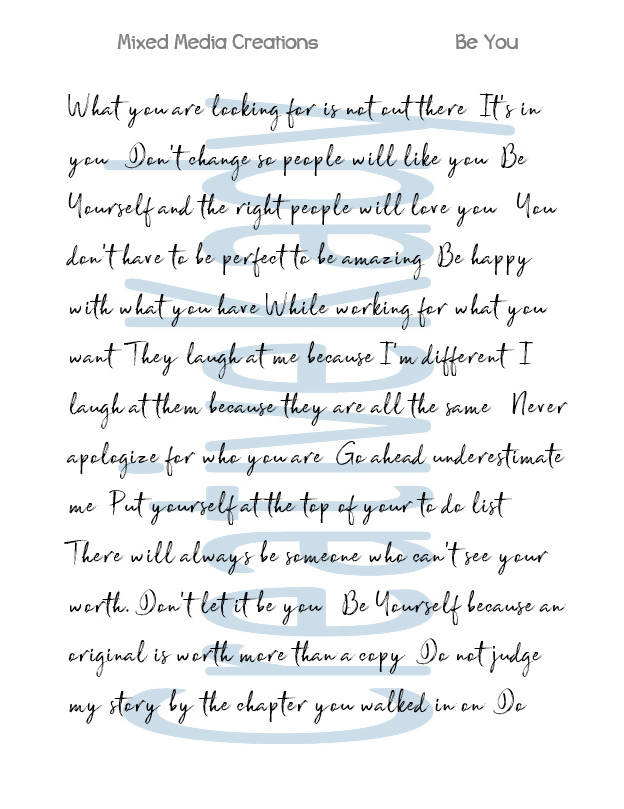 Mixed Media Creations Be You
What you are looking for is not out there It's in
you Don't change so people will like you Be
Yourself and the right people will love you You
don't have to be perfect to be amazing Be happy
with what you have While working for what you
want They laugh at me because I'm different I
laugh at them because they are all the same Never
apologize for who you are Go ahead underestimate
me Put yourself at the top of your to do list
There will always be someone who can't see your
worth. Don't let it be you Be Yourself because an
original is worth more than a copy Do not judge
my story by the chapter you walked in on Do
Creative Kady